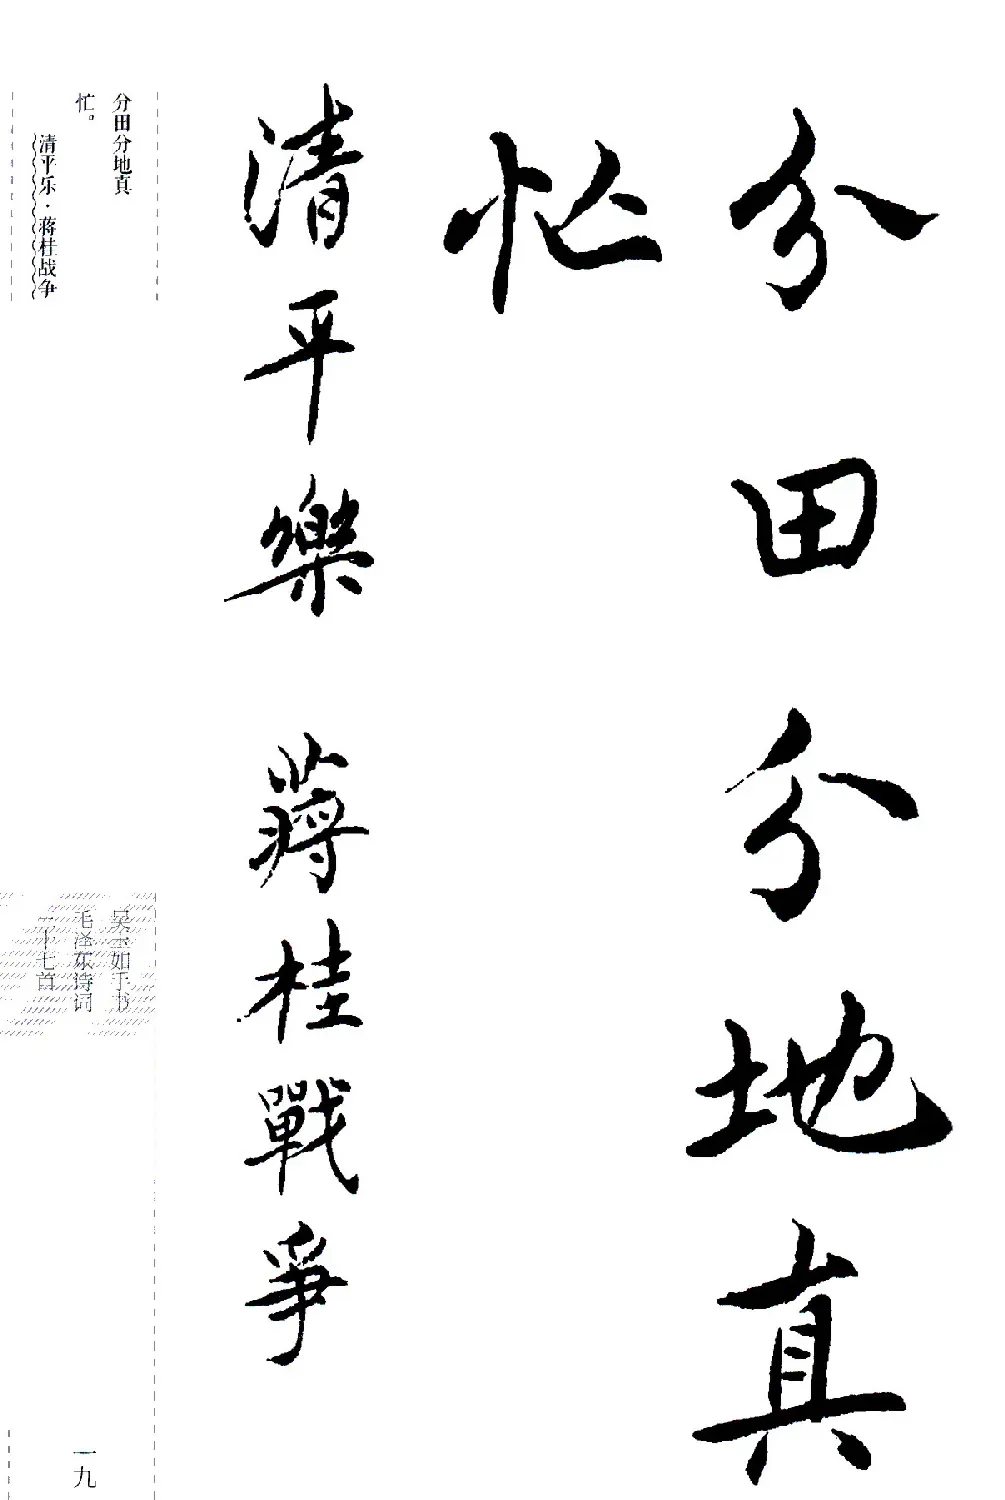 分田分地真
忙
清平樂 蔣桂戰爭
分田分地真
忙。
清平乐·蒋桂战争
吴玉如手书
毛泽东诗词
二十七首
一九